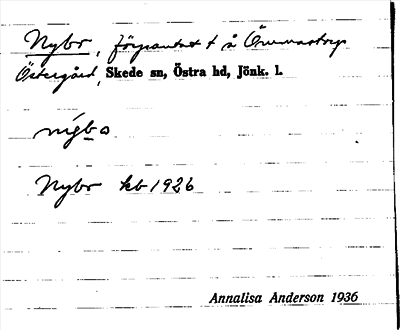 Nybo, förpantat t å Ömmestorp
Östergård, Skede sn, Östra hd, Jönk. l.
nýbo
Nybo kb 1926
Annalisa Anderson 1936